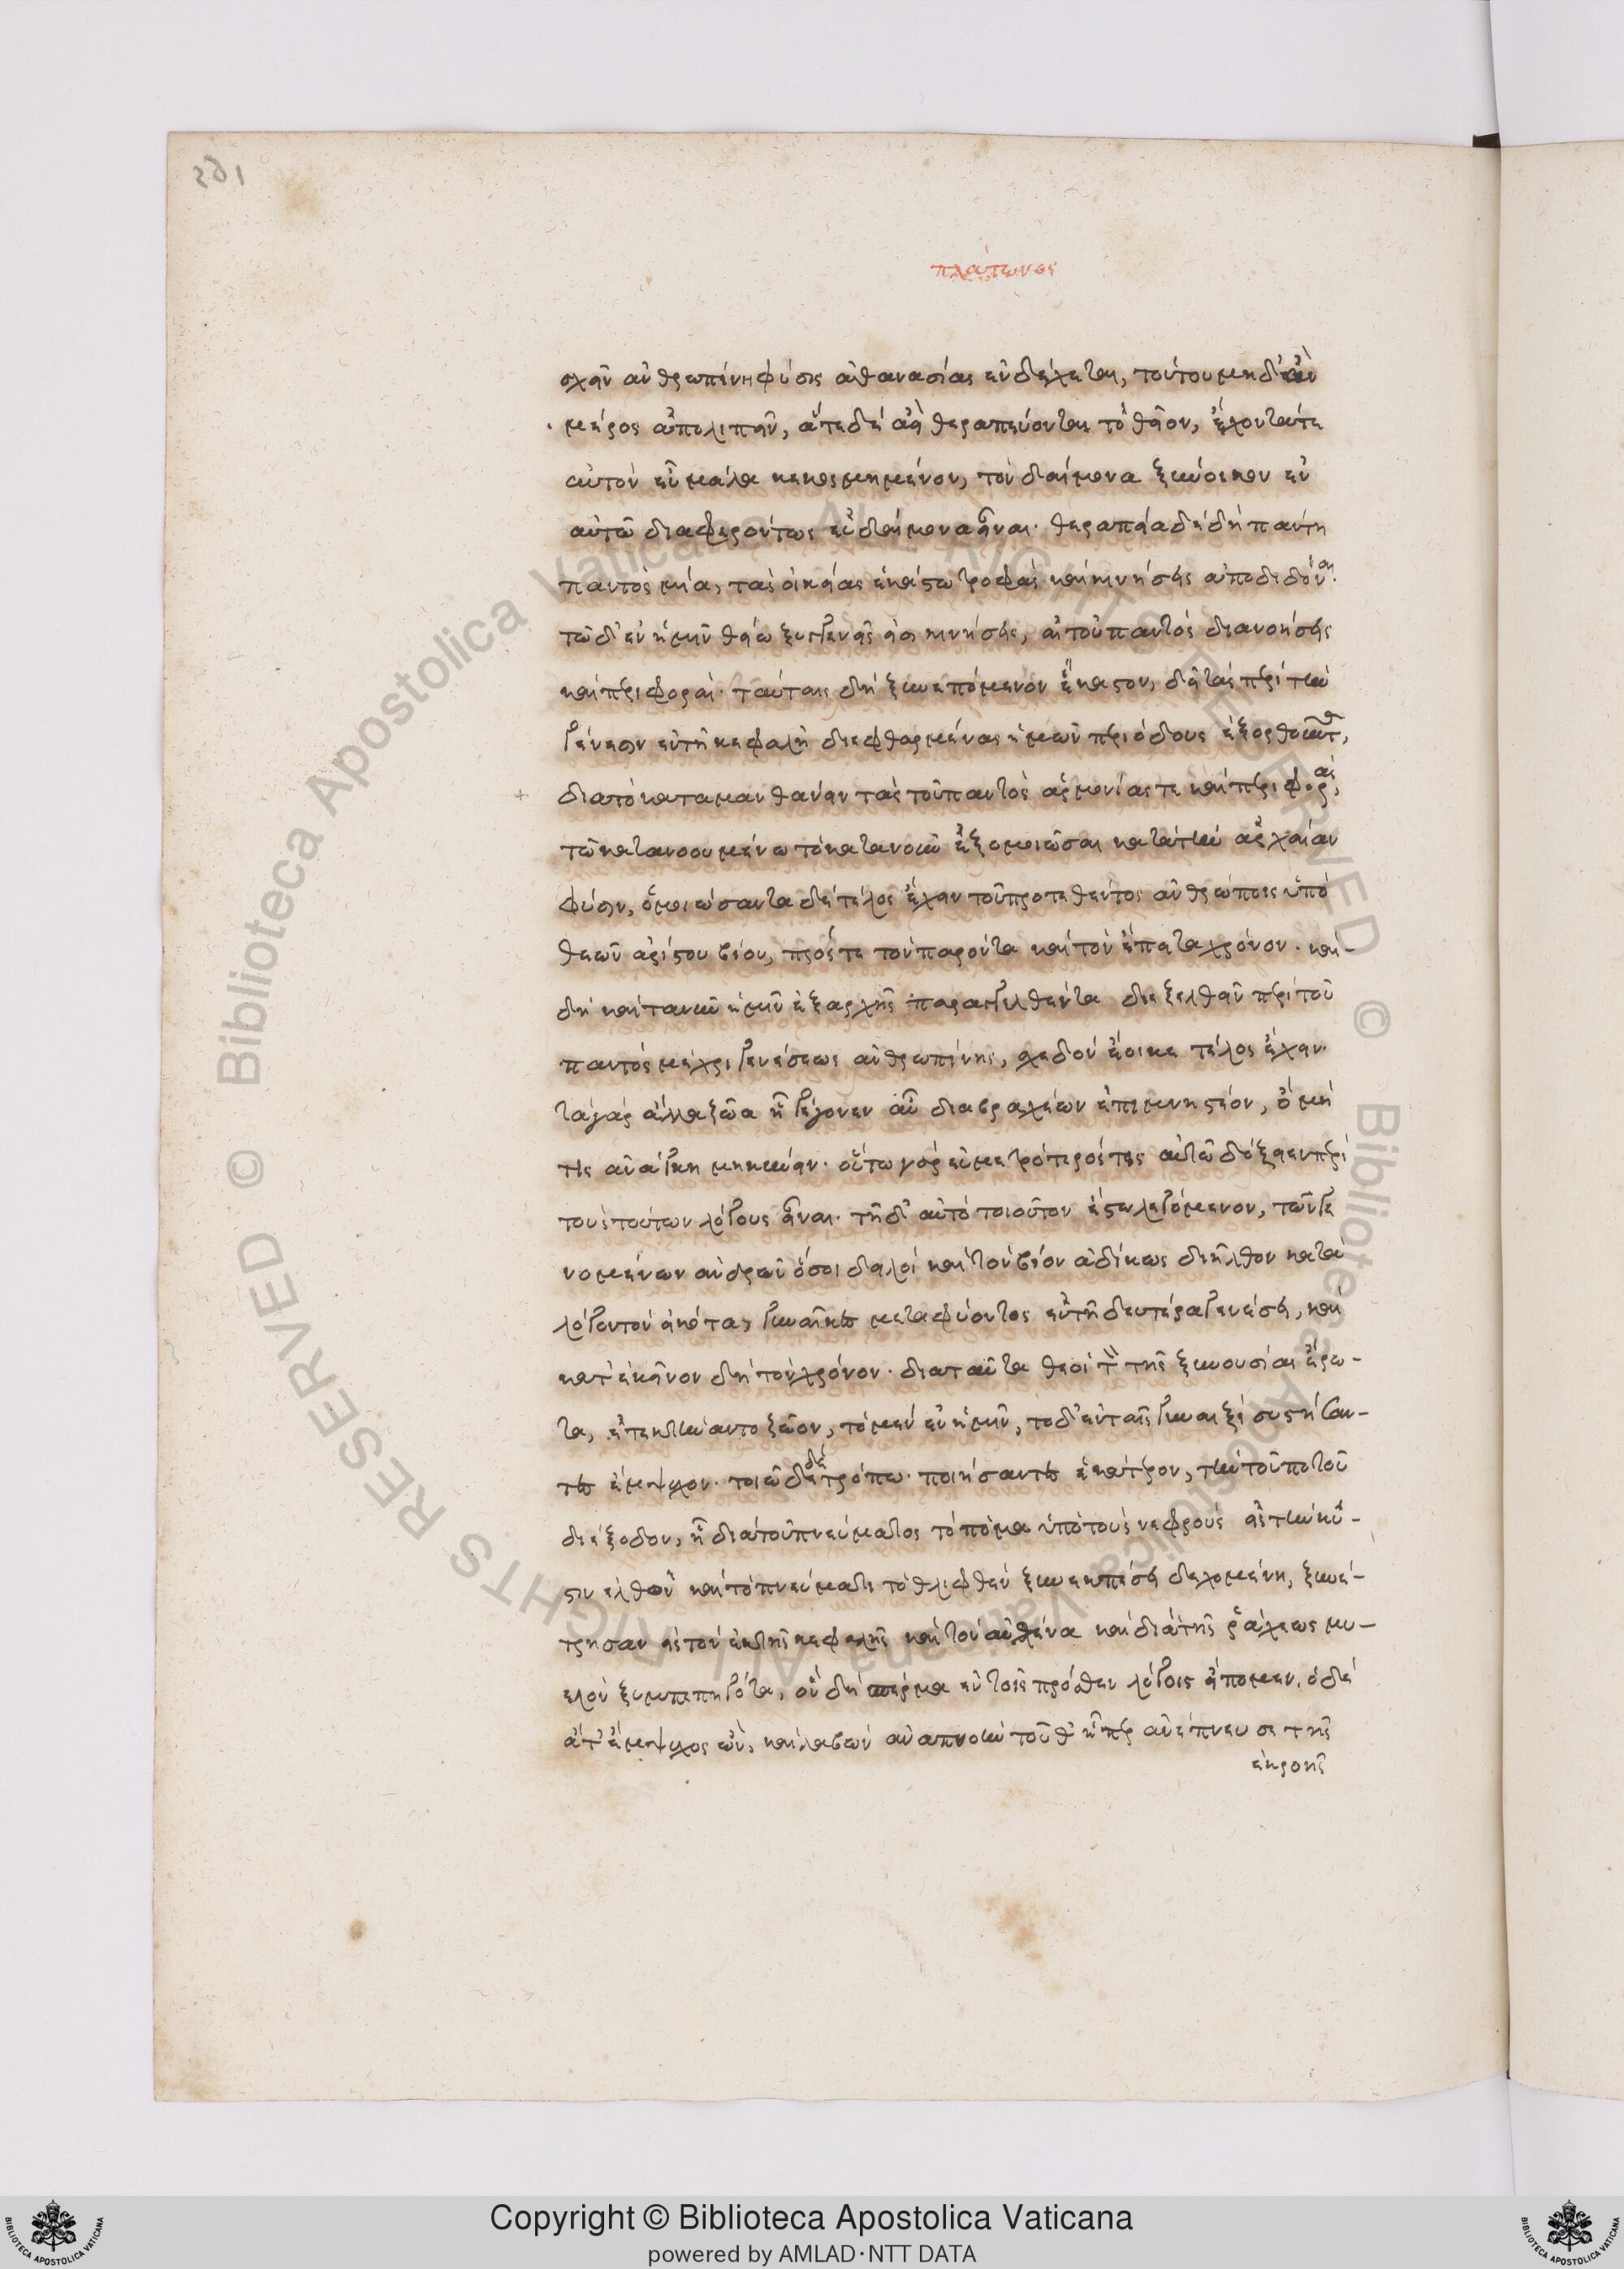 πλάτωνος
σχεῖν ἀνθρωπίνη φύσις ἀθανασίας ἐνδέχεται, τούτου μηδὲν
μέρος ἀπολιπεῖν, ἅτε δὲ ἀεὶ θεραπεύονται τὸ θεῖον, ἔχοντά τε
αὐτὸν εὖ μάλα κεκοσμημένον, τὸν δαίμονα ξύνοικον ἐν
αὐτῶ διαφερόντως εὐδαίμονα εἶναι· θεραπεία δὲ δὴ παντὴ
παντὸς μία, τὰς οἰκείας ἑκάστω τροφὰς καὶ κινήσεις ἀποδιδόναι.
τῶ δ' ἐν ἡμῖν θείω ξυγγενεῖς εἰσι κινήσεις, αἱ τοῦ παντὸς διανοήσεις
καὶ περιφοραί· ταύταις δὴ ξυνεπόμενον ἕκαστον, δεῖ τὰς περὶ τὴν
γένεσιν ἐν τῆ κεφαλῆ διεφθαρμένας ἡμῶν περιόδους ἐξορθοῦντα,
διὰ τὸ καταμανθάνειν τὰς τοῦ παντὸς ἁρμονίας τε καὶ περιφοράς,
τῶ κατανοουμένω τὸ κατανοοῦν ἐξομοιῶσαι κατὰ τὴν ἀρχαίαν
φύσιν, ὁμοιώσαντα δὲ τέλος ἔχειν τοῦ προτεθέντος ἀνθρώποις ὑπὸ
θεῶν ἀρίστου βίου, πρός τε τὸν παρόντα καὶ τὸν ἔπειτα χρόνον· καὶ-
δὴ καὶ τανῦν ἡμῖν ἐξ ἀρχῆς παραγγελθέντα διεξελθεῖν περὶ τοῦ
παντὸς μέχρι γενέσεως ἀνθρωπίνης, σχεδὸν ἔοικε τέλος ἔχειν·
τὰ γὰρ ἄλλα ζῶα ἧ γέγονεν αὖ διὰ βραχέων ἐπιμνηστέον, ὃ μή
τις ἀνάγκη μηκύνειν· οὕτω γὰρ ἐμμετρότερός τις αὐτῶ δόξειεν περὶ
τοὺς τούτων λόγους εἶναι· τῆδ' αὐτὸ τοιοῦτον ἔστω λεγόμενον, τῶν γε
νομένων ἀνδρῶν ὅσοι δειλοὶ καὶ τὸν βίον ἀδίκως διῆλθον κατὰ
λόγον τὸν εἰκότα, γυναῖκες μεταφύοντος ἐν τῆ δευτέρα γενέσει, καὶ
κατ' ἐκεῖνον δὴ τὸν χρόνον· διὰ ταῦτα θεοὶ τὸν τῆς ξυνουσίας ἔρω-
τα, ἐτεκτήναντο ζῶον, τὸ μὲν ἐν ἡμῖν, τὸ δ' ἐν ταῖς γυναιξὶ συστήσαν-
τες ἔμψυχον· τοιῶδε δὲ τρόπω· ποιήσαντες ἑκάτερον, τὴν τοῦ ποτοῦ
διέξοδον, ἧ διὰ τοῦ πνεύματος τὸ πόμα ὑπὸ τοὺς νεφροὺς εἰς τὴν κύ-
στιν ἐλθὸν καὶ τὸ πνεύματι τὸ θλιφθὲν ξυνεκπέσει δεχομένη, ξυνέ-
τρησαν εἰς τὸν ἐκ τῆς κεφαλῆς καὶ τὸν αὐχένα καὶ διὰ τῆς ῥάχεως μυ-
ελὸν ξυμπεπηγότα, ὃν δὴ σπέρμα ἐν τοῖς πρόσθεν λόγοις εἴπομεν, ὁ δὲ
ἅτ' ἔμψυχος ὢν, καὶ λαβὼν ἀναπνοὴν τοῦθ' ἧπερ ἀνέπνευσε τῆς
ἐκροῆς